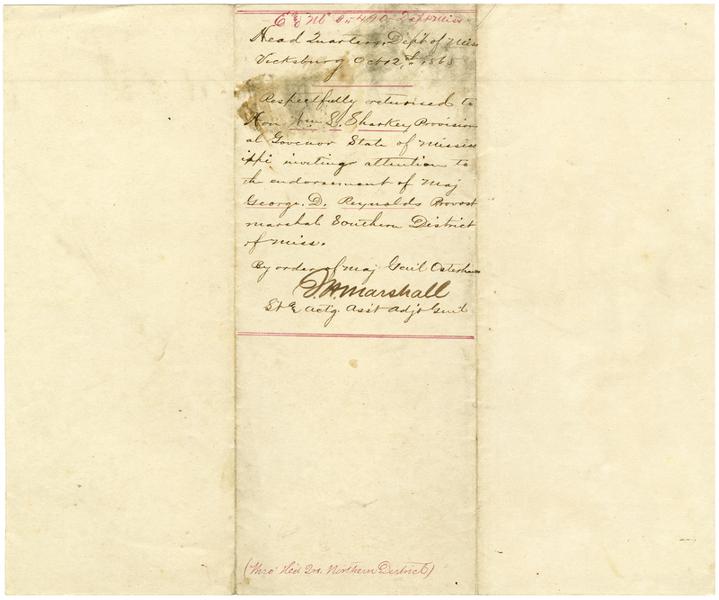 E & M Bk 490 Dept Miss
Head Quarters, Dept of Miss
Vicksburg Oct 12th 1865
Respectfully returned to
Hon Wm L. Sharkey, Provision
al Govenor State of Mississ
ippi inviting attention to
the endorsement of Maj
George. D. Reynolds Provost
marshal Southern District
of Miss.
By order of Maj Genil Osterhaus
Marshall
Lt & Actg. Asst Adjt Genil
(Thro' Hed Qrs. Northern District)